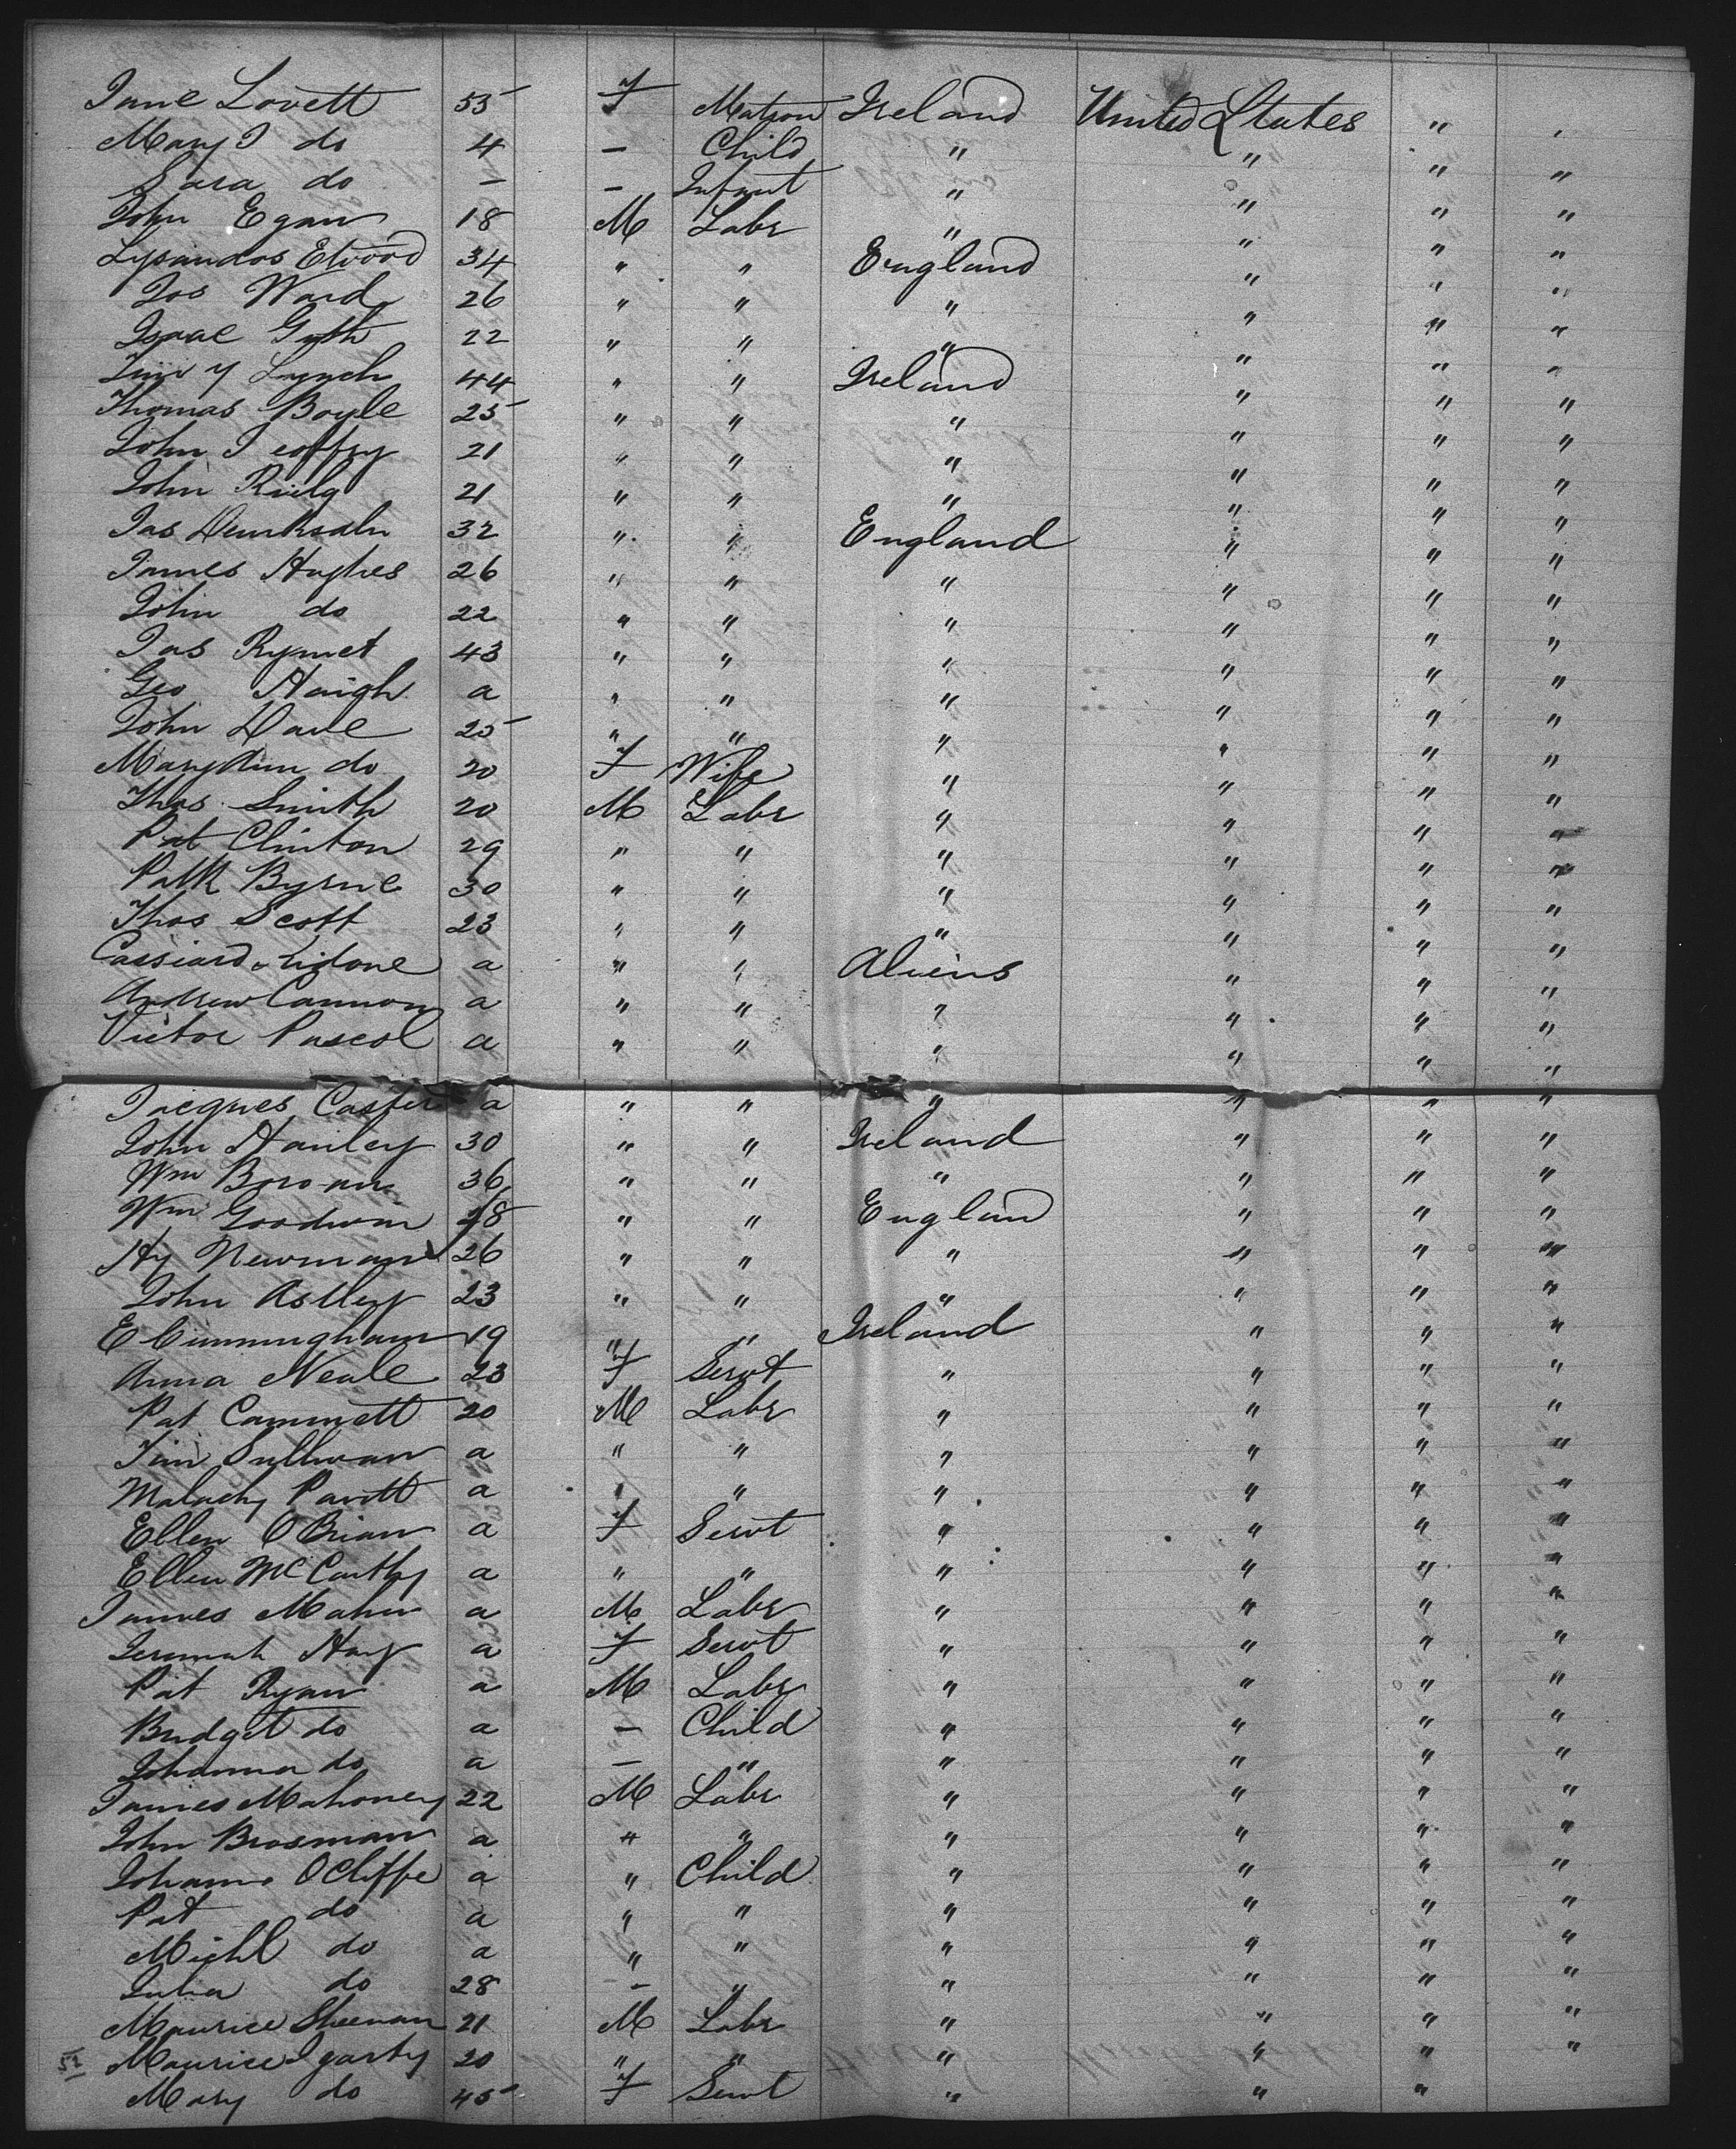 Jane Lovett 55 F Matron Ireland United States " "
Mary J do 4 — Child " " " "
Sara do — — Infant " " " "
John Egan 18 M Labr " " " "
Lysandos Elwood 34 " " England " " "
Jos Ward 26 " " " " " "
Isaac Guth 22 " " " " " "
Lynch 44 " " Ireland " " "
Thomas Boyle 25 " " " " " "
John J eoffry 21 " " " " " "
John Rielg 21 " " " " " "
Jas 32 " " England " " "
James Hughes 26 " " " " " "
John do 22 " " " " " "
Jas Rymet 43 " " " " " "
Geo Haigh a " " " " " "
John Dale 25 " " " " " "
Mary Ann do 20 F Wife " " " "
Thos Smith 20 M Labr " " " "
Pat Clinton 29 " " " " " "
Patk Byrne 30 " " " " " "
Thos Scott 23 " " " " " "
Cassiard a " " Aliens " " "
Andrew Cannon a " " " " " "
Victor Pascol a " " " " " "
Jacques Caster a " " " " " "
John Hanley 30 " " Ireland " " "
Wm 36 " " " " " "
Wm Goodwin 28 " " England " " "
Hy Newman 26 " " " " " "
John Astley 23 " " " " " "
E Cunningham 19 " " Ireland " " "
Anna Neale 23 F Servt " " " "
Pat Cammett 20 M Labr " " " "
Tim Sullivan a " " " " " "
Malachy Pavitt a " " " " " "
Ellen O Brian a F Servt " " " "
Ellen McCarthy a " " " " " "
James Maher a M Labr " " " "
Jeremiah Hay a F Servt " " " "
Pat Ryan a M Labr " " " "
Bridget do a — Child " " " "
Johanna do a — " " " " "
James Mahoney 22 M Labr " " " "
John Brosman a " " " " " "
Johanna OCliffe a " Child " " " "
Pat do a " " " " " "
Michl do a " " " " " "
Julia do 28 — " " " " "
Maurice Sheenan 21 M Labr " " " "
52 Maurice Jgarty 20 " " " " " "
Mary do 45 F Servt " " "